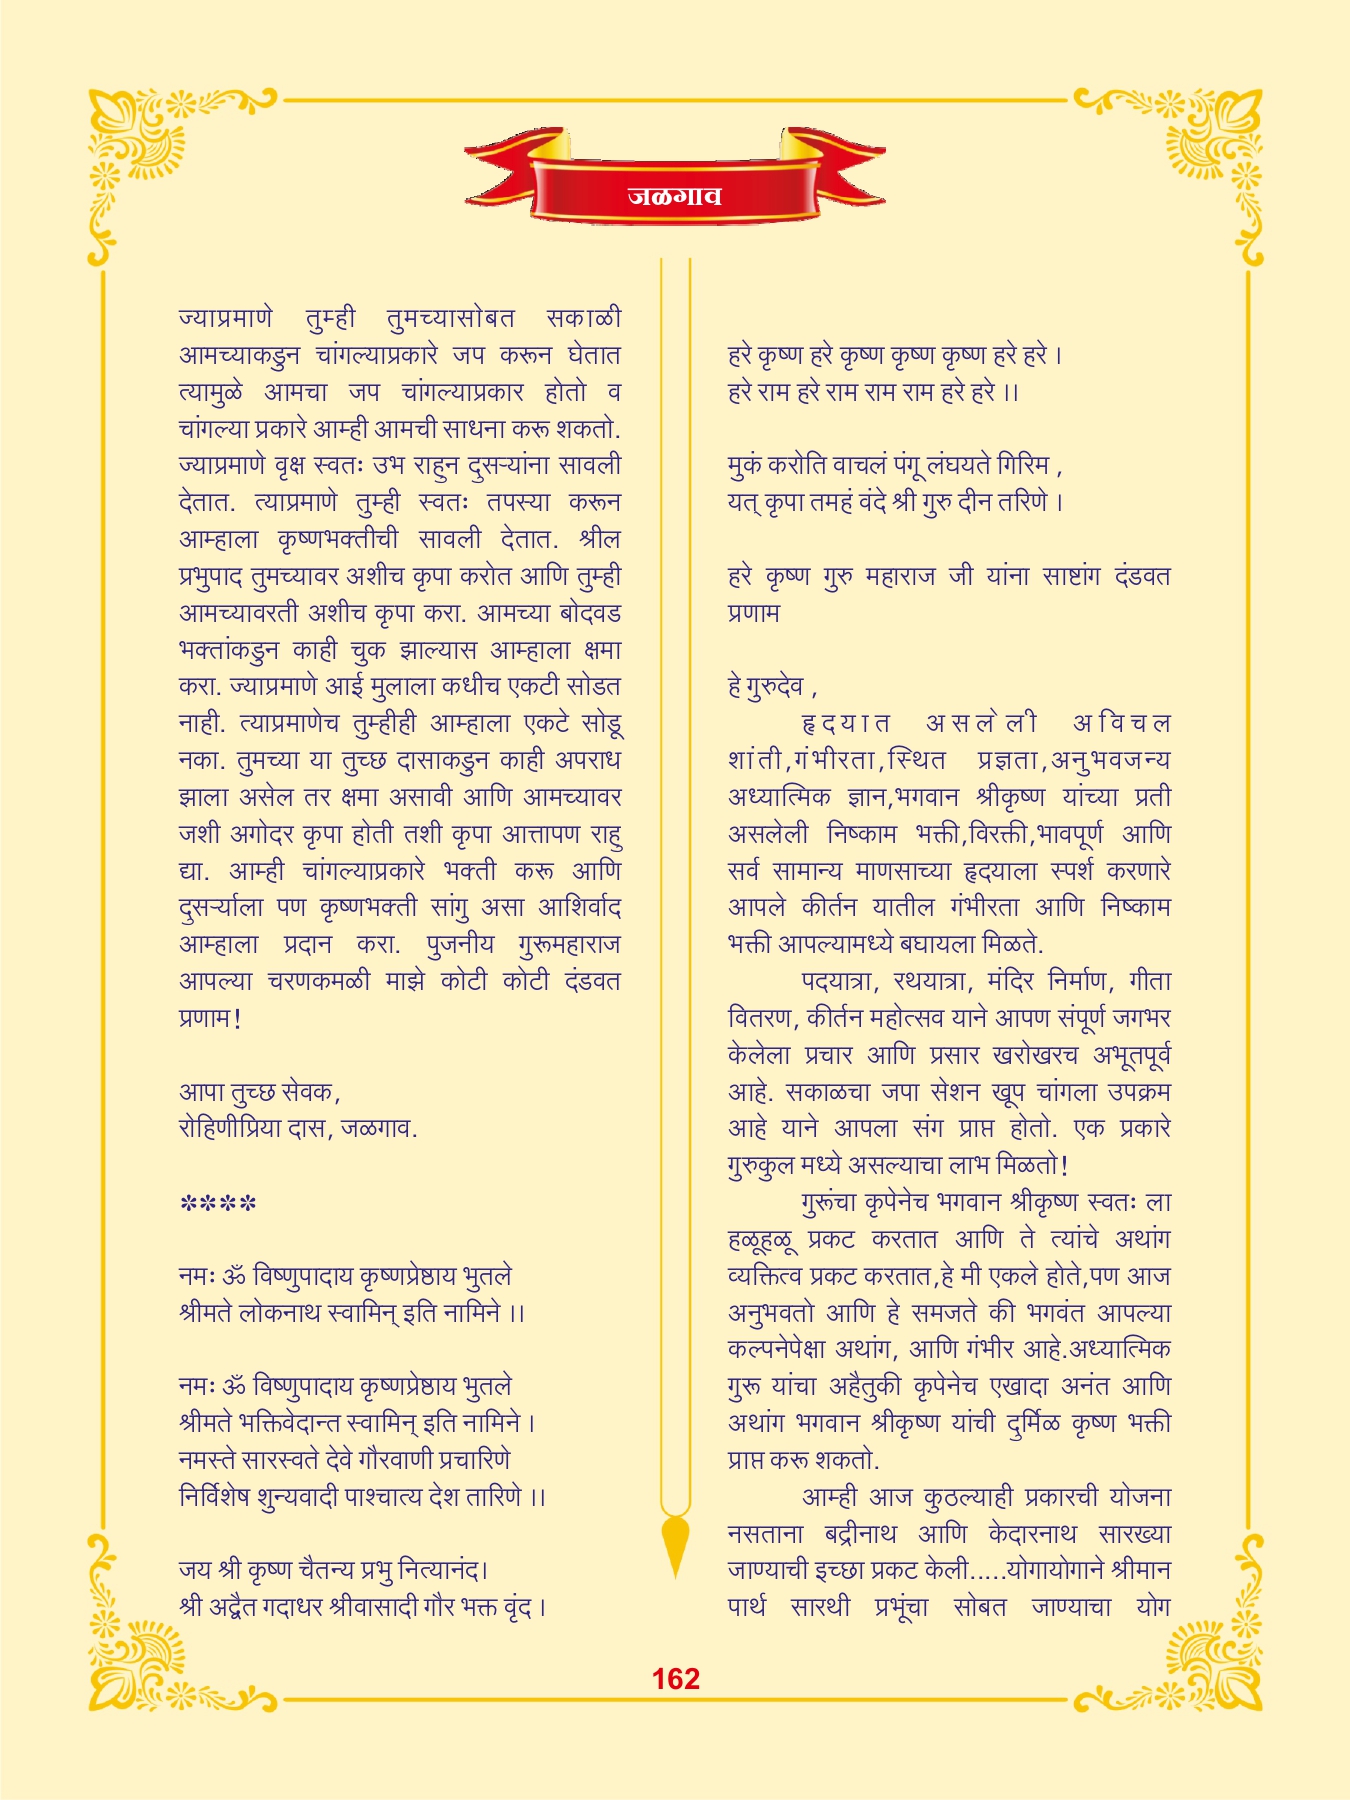 जळगाव
ज्याप्रमाणे तुम्ही तुमच्यासोबत सकाळी
आमच्याकडुन चांगल्याप्रकारे जप करून घेतात
त्यामुळे आमचा जप चांगल्याप्रकार होतो व
चांगल्या प्रकारे आम्ही आमची साधना करू शकतो.
ज्याप्रमाणे वृक्ष स्वतः उभ राहुन दुसऱ्यांना सावली
देतात. त्याप्रमाणे तुम्ही स्वतः तपस्या करून
आम्हाला कृष्णभक्तीची सावली देतात. श्रील
प्रभुपाद तुमच्यावर अशीच कृपा करोत आणि तुम्ही
आमच्यावरती अशीच कृपा करा. आमच्या बोदवड
भक्तांकडुन काही चुक झाल्यास आम्हाला क्षमा
करा. ज्याप्रमाणे आई मुलाला कधीच एकटी सोडत
नाही. त्याप्रमाणेच तुम्हीही आम्हाला एकटे सोडू
नका. तुमच्या या तुच्छ दासाकडुन काही अपराध
झाला असेल तर क्षमा असावी आणि आमच्यावर
जशी अगोदर कृपा होती तशी कृपा आत्तापण राहु
द्या. आम्ही चांगल्याप्रकारे भक्ती करू आणि
दुसऱ्र्याला पण कृष्णभक्ती सांगु असा आशिर्वाद
आम्हाला प्रदान करा. पुजनीय गुरूमहाराज
आपल्या चरणकमळी माझे कोटी कोटी दंडवत
प्रणाम!
आपा तुच्छ सेवक,
रोहिणीप्रिया दास, जळगाव.
****
नमः ॐ विष्णुपादाय कृष्णप्रेष्ठाय भुतले
श्रीमते लोकनाथ स्वामिन् इति नामिने ।।
नमः ॐ विष्णुपादाय कृष्णप्रेष्ठाय भुतले
श्रीमते भक्तिवेदान्त स्वामिन् इति नामिने ।
नमस्ते सारस्वते देवे गौरवाणी प्रचारिणे
निर्विशेष शुन्यवादी पाश्चात्य देश तारिणे ।।
जय श्री कृष्ण चैतन्य प्रभु नित्यानंद।
श्री अद्वैत गदाधर श्रीवासादी गौर भक्त वृंद ।
हरे कृष्ण हरे कृष्ण कृष्ण कृष्ण हरे हरे ।
हरे राम हरे राम राम राम हरे हरे ।।
मुकं करोति वाचलं पंगू लंघयते गिरिम ,
यत् कृपा तमहं वंदे श्री गुरु दीन तरिणे ।
हरे कृष्ण गुरु महाराज जी यांना साष्टांग दंडवत
प्रणाम
हे गुरुदेव ,
हृदयात असलेली अविचल
शांती,गंभीरता,स्थित प्रज्ञता,अनुभवजन्य
अध्यात्मिक ज्ञान,भगवान श्रीकृष्ण यांच्या प्रती
असलेली निष्काम भक्ती,विरक्ती,भावपूर्ण आणि
सर्व सामान्य माणसाच्या हृदयाला स्पर्श करणारे
आपले कीर्तन यातील गंभीरता आणि निष्काम
भक्ती आपल्यामध्ये बघायला मिळते.
पदयात्रा, रथयात्रा, मंदिर निर्माण, गीता
वितरण, कीर्तन महोत्सव याने आपण संपूर्ण जगभर
केलेला प्रचार आणि प्रसार खरोखरच अभूतपूर्व
आहे. सकाळचा जपा सेशन खूप चांगला उपक्रम
आहे याने आपला संग प्राप्त होतो. एक प्रकारे
गुरुकुल मध्ये असल्याचा लाभ मिळतो!
गुरूंचा कृपेनेच भगवान श्रीकृष्ण स्वतः ला
हळूहळू प्रकट करतात आणि ते त्यांचे अथांग
व्यक्तित्व प्रकट करतात,हे मी एकले होते,पण आज
अनुभवतो आणि हे समजते की भगवंत आपल्या
कल्पनेपेक्षा अथांग, आणि गंभीर आहे.अध्यात्मिक
गुरू यांचा अहैतुकी कृपेनेच एखादा अनंत आणि
अथांग भगवान श्रीकृष्ण यांची दुर्मिळ कृष्ण भक्ती
प्राप्त करू शकतो.
आम्ही आज कुठल्याही प्रकारची योजना
नसताना बद्रीनाथ आणि केदारनाथ सारख्या
जाण्याची इच्छा प्रकट केली.....योगायोगाने श्रीमान
पार्थ सारथी प्रभूंचा सोबत जाण्याचा योग
162